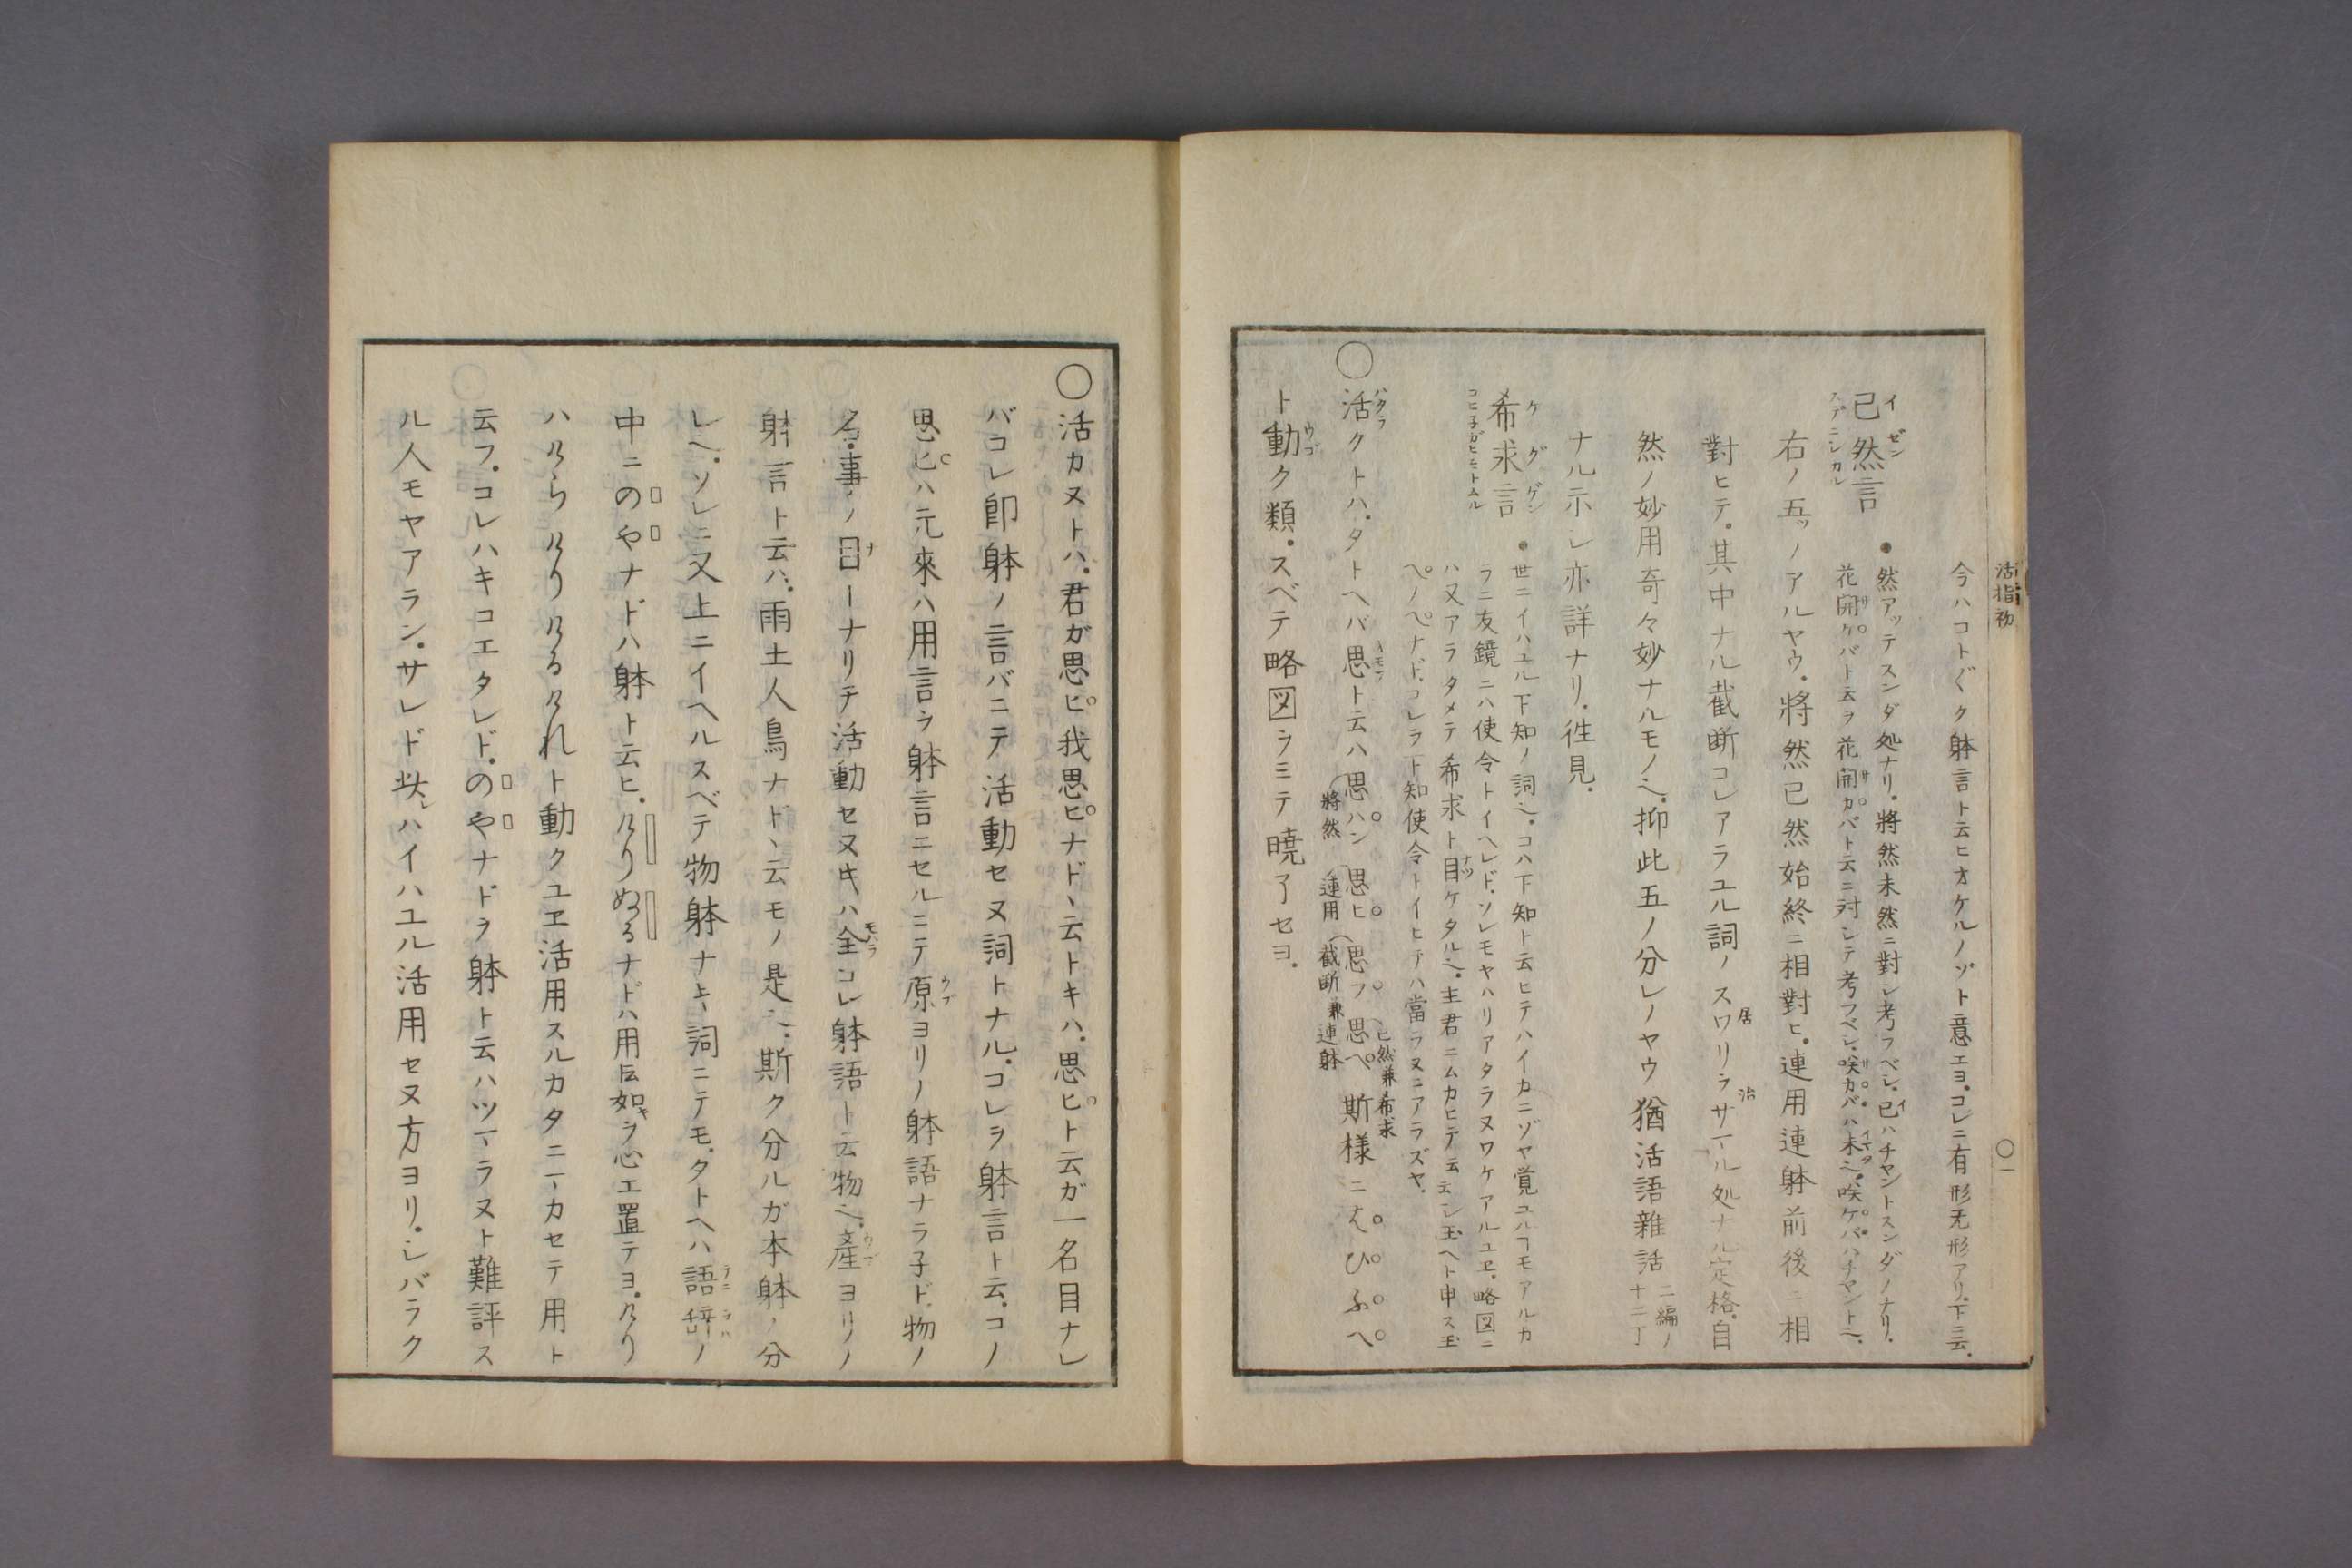 活指初
〇一
今ハコトゞク躰言ト云ヒオケルノゾト意エヨ。コレニ有形无形アリ。下ニ云。
已然言
イゼン
スデニシカル
●然アッテスンダ処ナリ。將然未然ニ對シ考フベシ。已ハチヤントスンダノナリ。
花開ケバト云ヲ花開カバト云ニ対シテ考フベシ。咲カバハ未ヘ。咲ケバハチヤントヘ。
右ノ五ッノアルヤウ。將然已然始終ニ相對ヒ。連用連躰前後ニ相
對ヒテ。其中ナル截断コレアラユル詞ノスワリヲサムル処ナル定格。自
居
治
然ノ妙用奇々妙ナルモノヘ。抑此五ノ分レノヤウ猶活語雜話二編ノ十二丁
ナル示シ亦詳ナリ。徃見。
希求言
ケグゲン
コヒ子ガヒモトムル
●世ニイハユル下知ノ詞ヘ。コハ下知ト云ヒテハイカニゾヤ覚ユルヿモアルカ
ラニ友鏡ニハ使令トイヘレド。ソレモヤハリアタラヌワケアルユヱ。略図ニ
ハ又アラタメテ希求ト目ケタルヘ。主君ニムカヒテ云云シ玉ヘト申ス玉
ヘノヘナド。コレヲ下知使令トイヒテハ當ラヌニアラズヤ。
〇活クトハ。タトヘバ思ト云ハ思ハン思ヒ思フ思ヘ斯様ニはひふへ
ハタラ
將然
連用
截断兼連躰
已然兼希求
ト動ク類。スベテ略図ヲミテ曉了セヨ。
ウゴ
〇活カヌトハ。君ガ思ヒ我思ヒナドヽ云トキハ。思ヒト云ガ一名目ナレ
バコレ即躰ノ言バニテ活動セヌ詞トナル。コレヲ躰言ト云。コノ
思ヒハ元來ハ用言ヲ躰言ニセルニテ原ヨリノ躰語ナラ子ド。物ノ
ウブ
名・事ノ目ーナリテ活動セヌキハ全コレ躰語ト云物ヘ。産ヨリノ
ナ
モハラ
ウブ
躰言ト云ハ。雨土人鳥ナドヽ云モノ是ヘ。斯ク分ルガ本躰ノ分
レヘ。ソレニ又上ニイヘルスベテ物躰ナキ詞ニテモ。タトヘハ語辞ノ
テニヲハ
中ニのやナドハ躰ト云ヒ。けりぬるナドハ用氏如ラ心エ置テヨ。けり
ハけらけりけるけれト動クユヱ活用スルカタニマカセテ用ト
云フ。コレハキコエタレド。のやナドヲ躰ト云ハツマラヌト難評ス
ル人モヤアラン。サレド㱏レハイハユル活用セヌ方ヨリ。シバラク